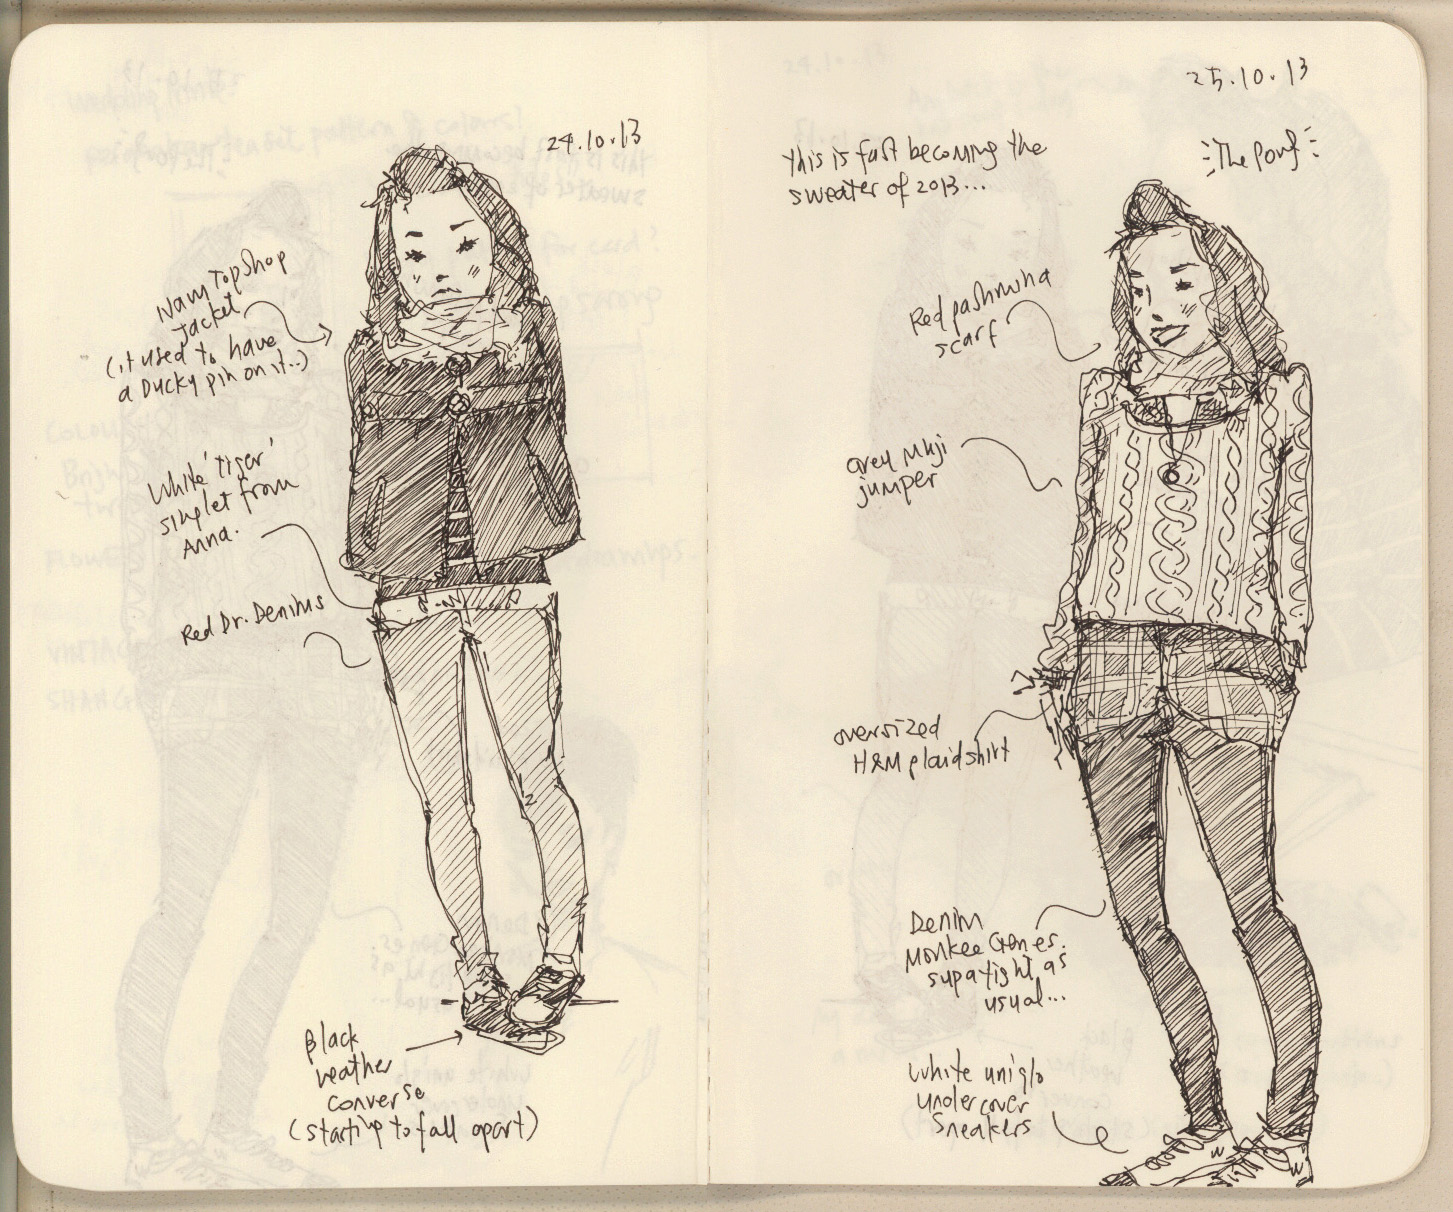 24.10.13
Navy Topshop
Jacket
(it used to have
a Ducky pin on it..)
White 'tiger'
singlet from
Anna.
Red Dr. Denims
Black
leather
converse
(starting to fall apart)
25.10.13
this is fast becoming the
sweater of 2013...
The Pouf
Red pashmina
scarf
Grey Muji
jumper
oversized
H&M plaid shirt
Denim
Monkee Genes.
supa tight as
usual...
White uniqlo
undercover
sneakers